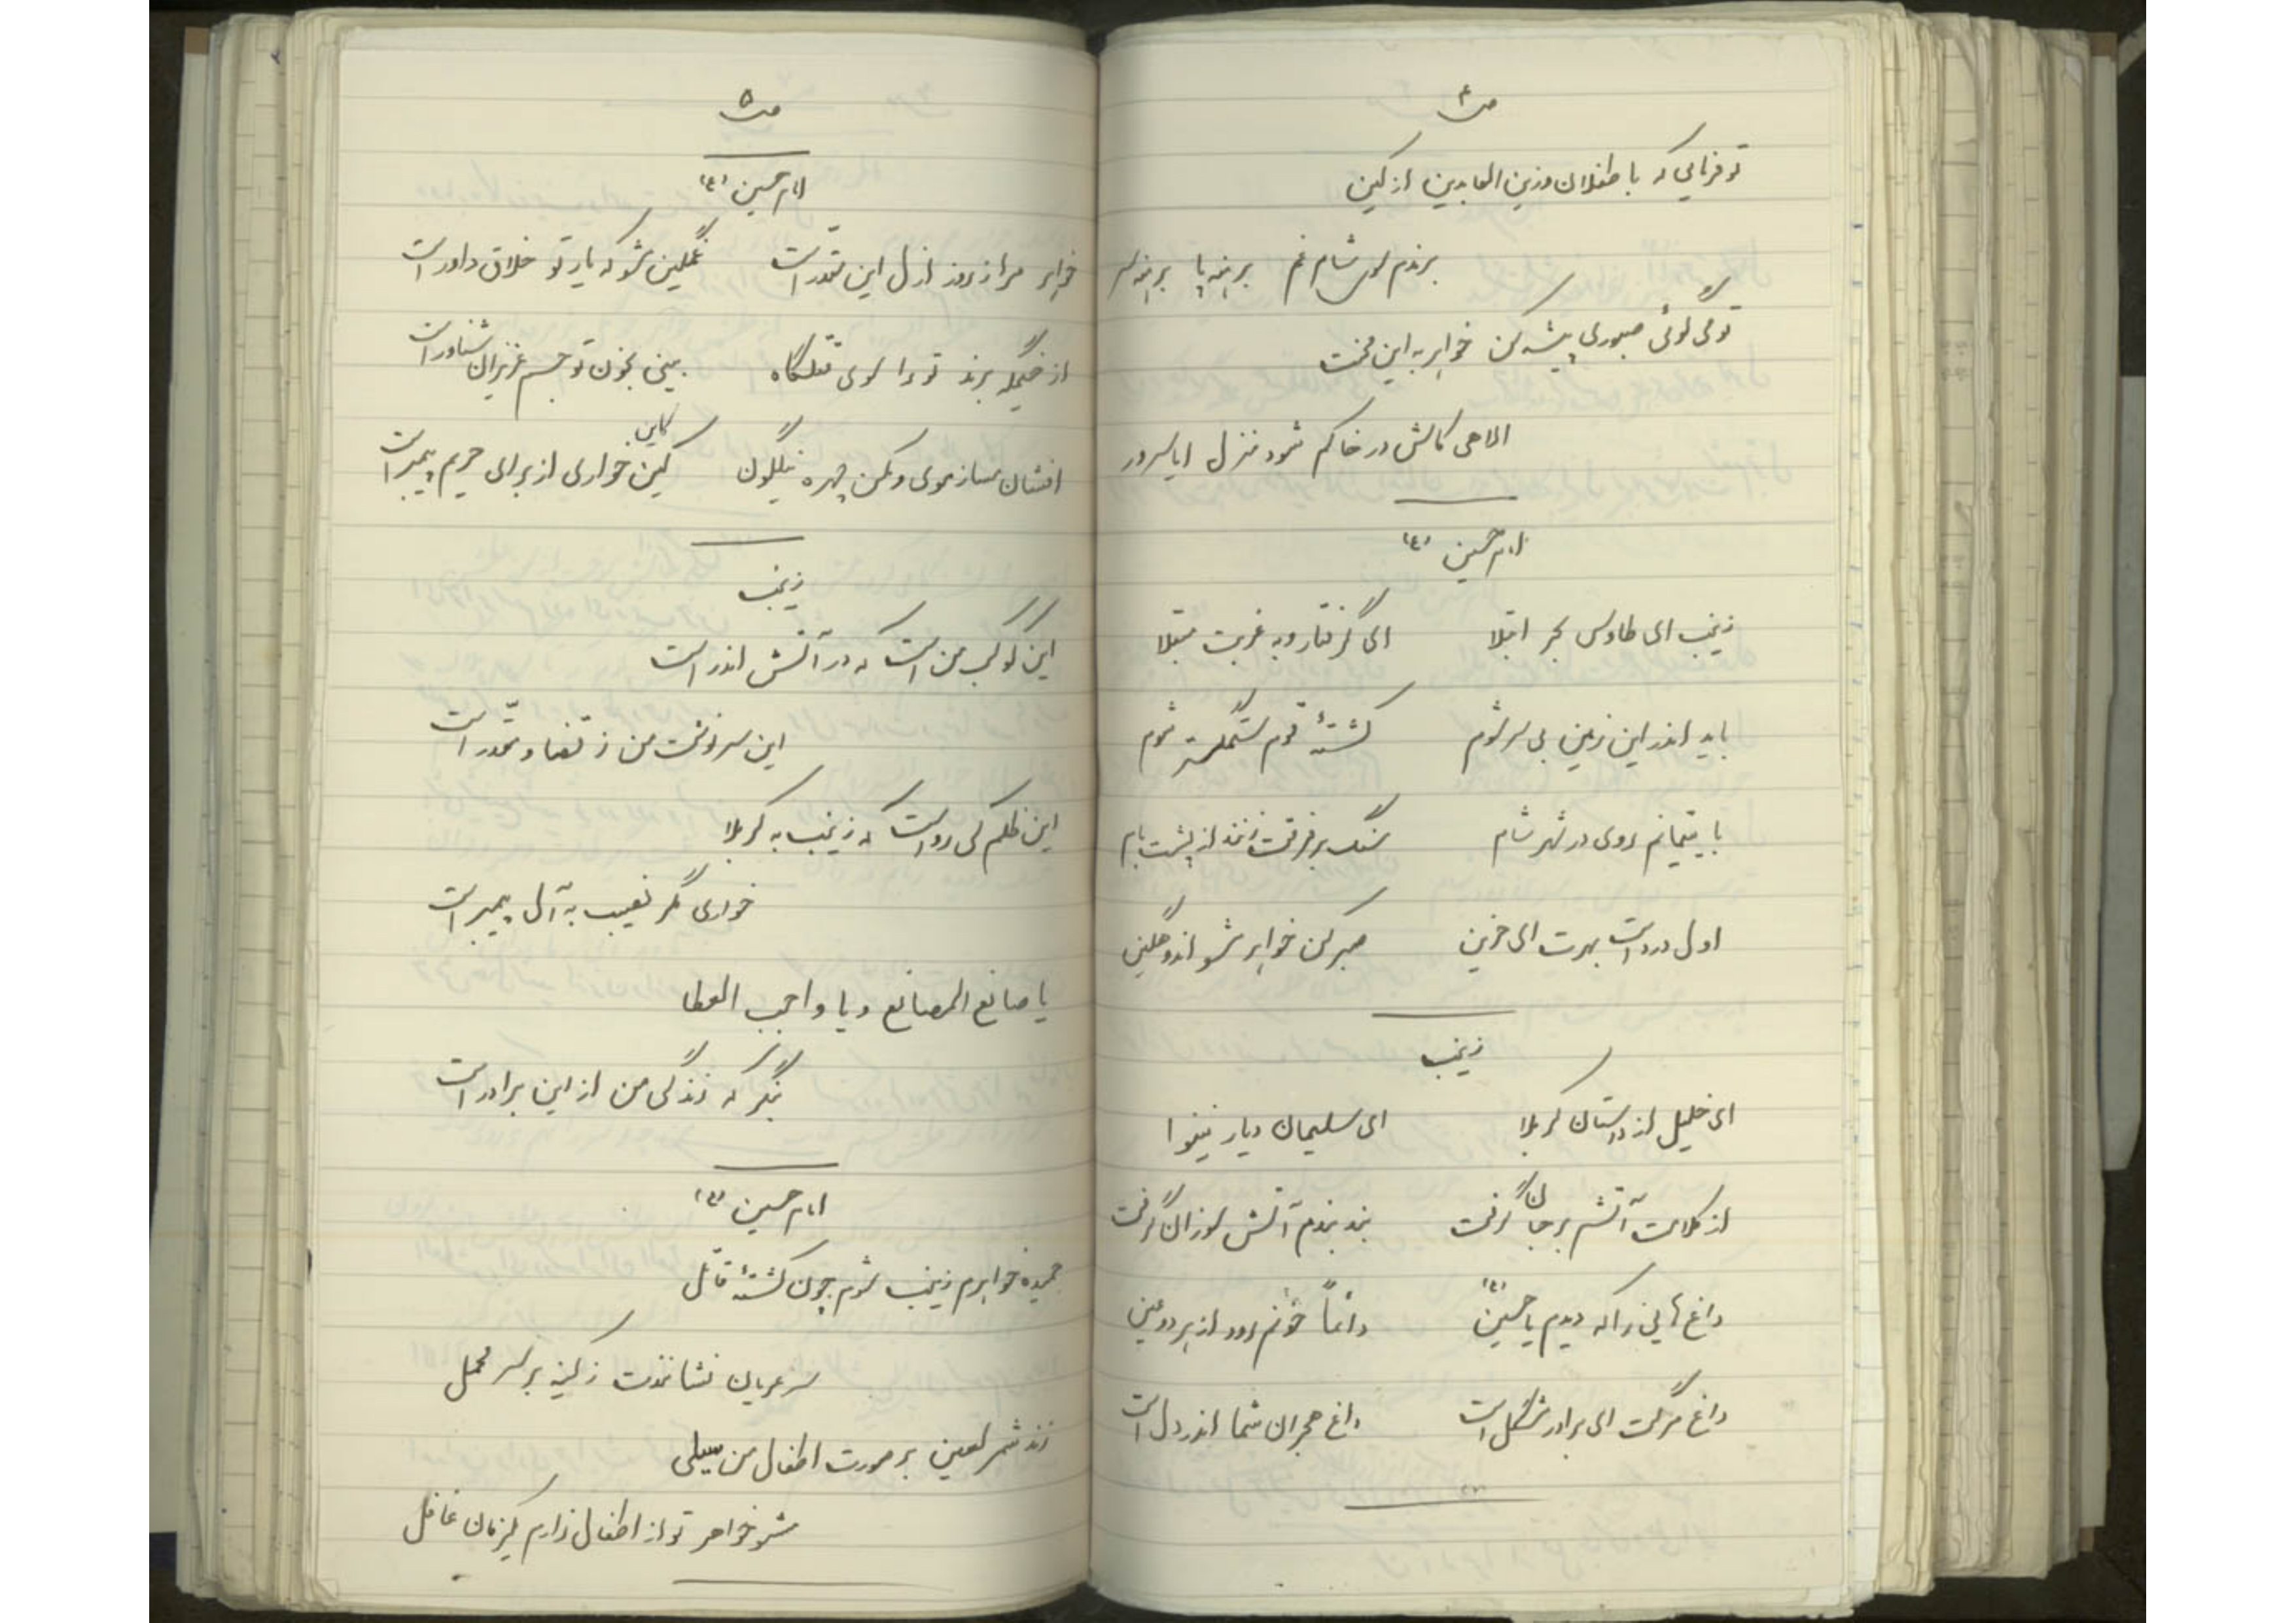 ص۴
تو فرمایی که با طفلان و زین العابدین از کین
برندم سوی شام غم برهنه پا برهنه سر
تو می گوئی صبوری پیشه کن خواهر به این محنت
الاهی کاش در خاکم شود منزل ایا سرور
امام حسین (ع)
زینب ای طاوس بحر ابتلا ای گرفتار و به غربت مبتلا
باید اندر این زمین بی سر شوم کشتهٔ قوم ستمگستر شوم
با یتیمانم روی در شهر شام سنگ بر فرقت زنند از پشت بام
اول درد است بهرت ای حزین صبر کن خواهر مشو اندوهگین
زینب
ای خلیل از داستان کربلا ای سلیمان دیار نینوا
از کلامت آتشم بر جان گرفت بند بندم آتش سوزان گرفت
داغ هایی را که دیدم یا حسین (ع) دائماً خونم رود از هر دو عین
داغ مرگت ای برادر مشکل است داغ هجران شما اندر دل است
ص۵
امام حسین (ع)
خواهر مرا ز روز ازل این مقدر است غمگین مشو که یار تو خلاق داور است
از خیمگه برند تو را سوی قتلگاه بینی بخون تو جسم عزیزان شناور است
افشان مساز موی و مکن چهره نیلگون کاین
کین خواری از برای حریم پیمبر است
زینب
این کوکب من است که در آتش اندر است
این سرنوشت من ز قضا و مقدر است
این ظلم کی رواست که زینب به کربلا
خواری مگر نصیب به آل پیمبر است
یا صانع المصانع و یا واجب العطا
بنگر که زندگی من از این برادر است
امام حسین (ع)
حمیده خواهرم زینب شوم چون کشتهٔ قاتل
سر عریان نشانندت ز کینه بر سر محمل
زند شمر لعین بر صورت اطفال من سیلی
مشو خواهر تو از اطفال زارم یکزمان غافل